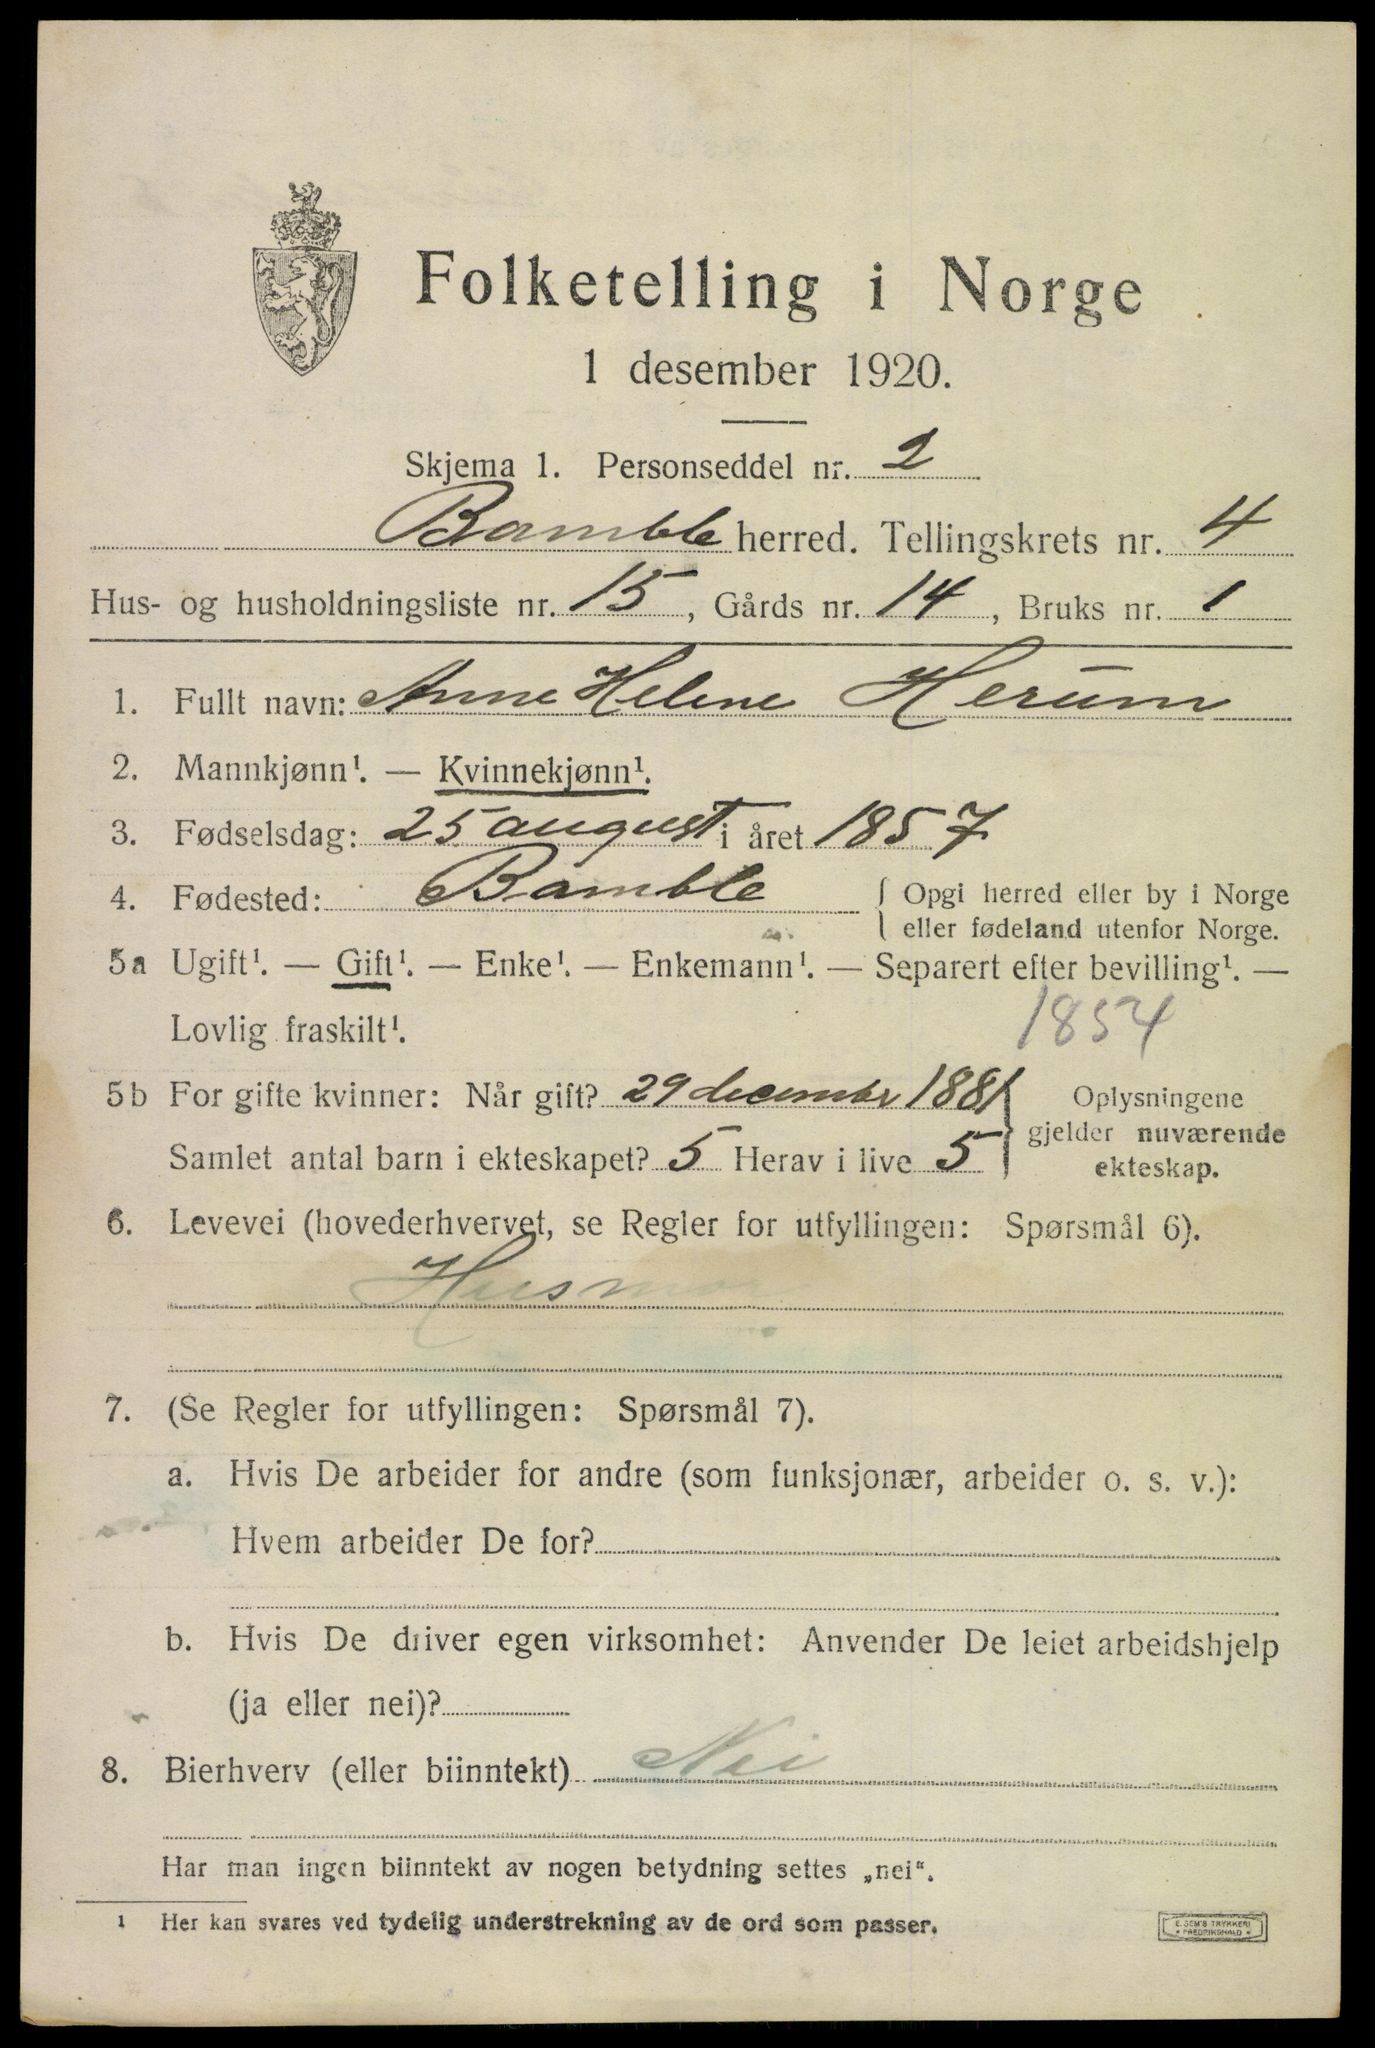 Folketelling i Norge
1 desember 1920.
Skjema 1. Personseddel nr. 2
Bamble herred. Tellingskrets nr. 4
Hus- og husholdningsliste nr. 15, Gårds nr. 14, Bruks nr. 1
1. Fullt navn: Anne Helene Herum
2. Mannkjønn¹. — Kvinnekjønn¹.
3. Fødselsdag: 25 august i året 1857
4. Fødested: Bamble { Opgi herred eller by i Norge
eller fødeland utenfor Norge.
5a Ugift¹. — Gift¹. — Enke¹. — Enkemann¹. — Separert efter bevilling¹. —
Lovlig fraskilt¹. 1854
5b For gifte kvinner: Når gift? 29 december 1881 } Oplysningene
gjelder nuværende
Samlet antal barn i ekteskapet? 5 Herav i live 5 ekteskap.
6. Levevei (hovederhvervet, se Regler for utfyllingen: Spørsmål 6).
Husmor
7. (Se Regler for utfyllingen: Spørsmål 7).
a. Hvis De arbeider for andre (som funksjonær, arbeider o. s. v.):
Hvem arbeider De for?
b. Hvis De driver egen virksomhet: Anvender De leiet arbeidshjelp
(ja eller nei)?
8. Bierhverv (eller biinntekt) Nei
Har man ingen biinntekt av nogen betydning settes „nei“.
1 Her kan svares ved tydelig understrekning av de ord som passer.
E. SEM'S TRYKKERI
• FREDRIKSHALD •